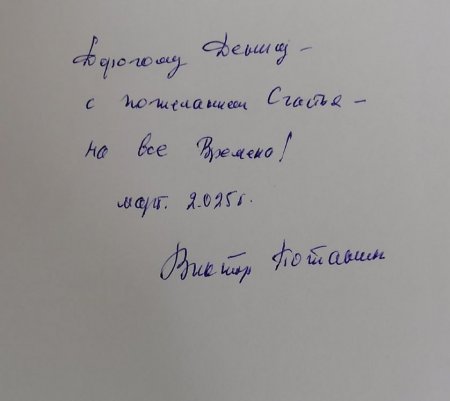 Дорогому Денису –
с пожеланием Счастья –
на все Времена!
март. 2.025г.
Виктор